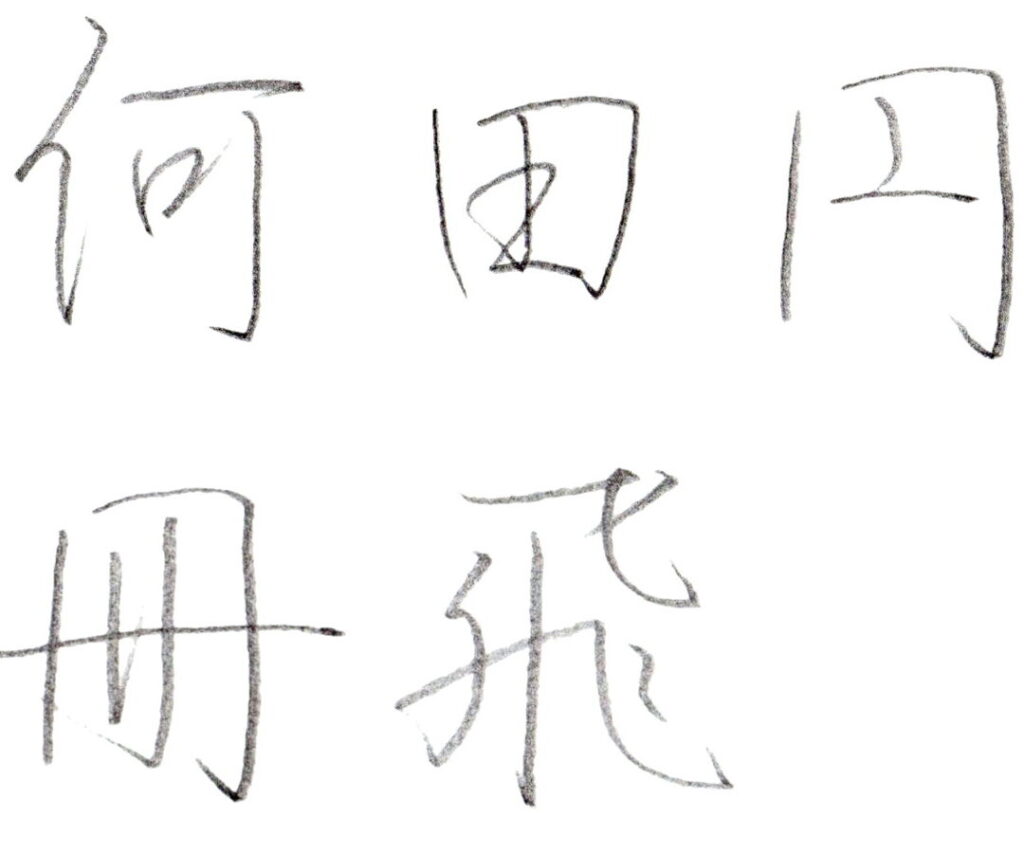 何田円
冊飛